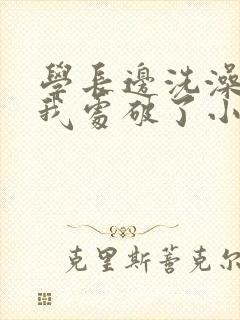 學長邊洗澡
我處破了小
克里斯蒈克尔